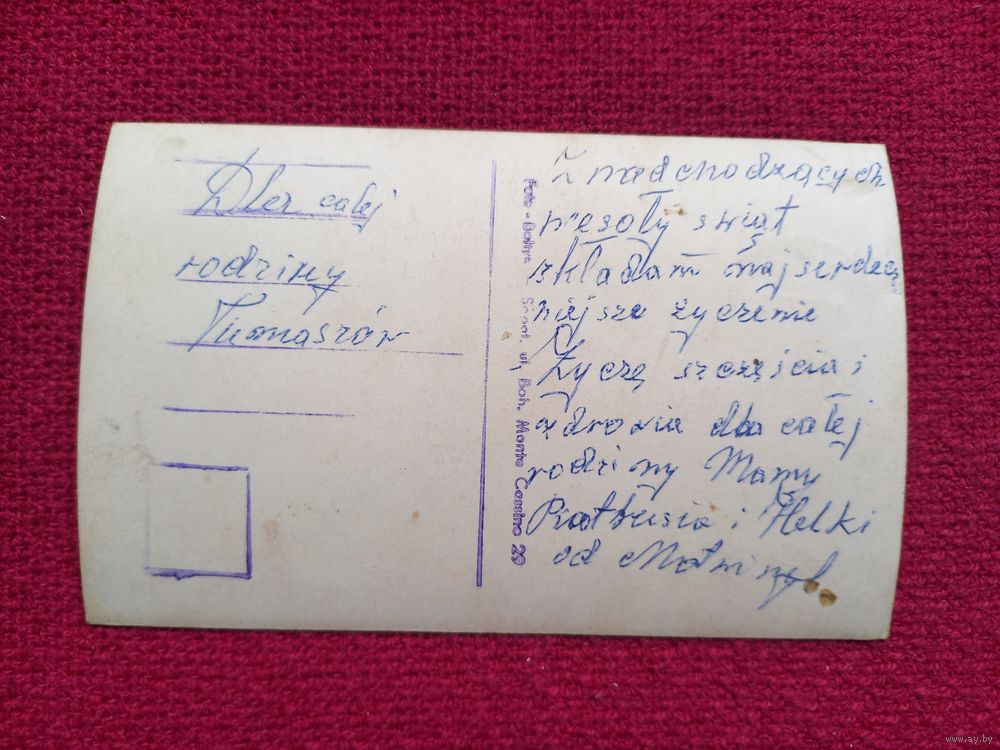 Dla całej
rodziny
Tumaszów
Foto - Bałtyk Sopot, ul. Boh. Monte Cassino 29
Z nadchodzących
wesoły swiąt
składam najserdecz
niejsze życzenie
Życzę szczęścia i
zdrowia dla całej
rodziny Mamy
i Helki
od
www.ay.by